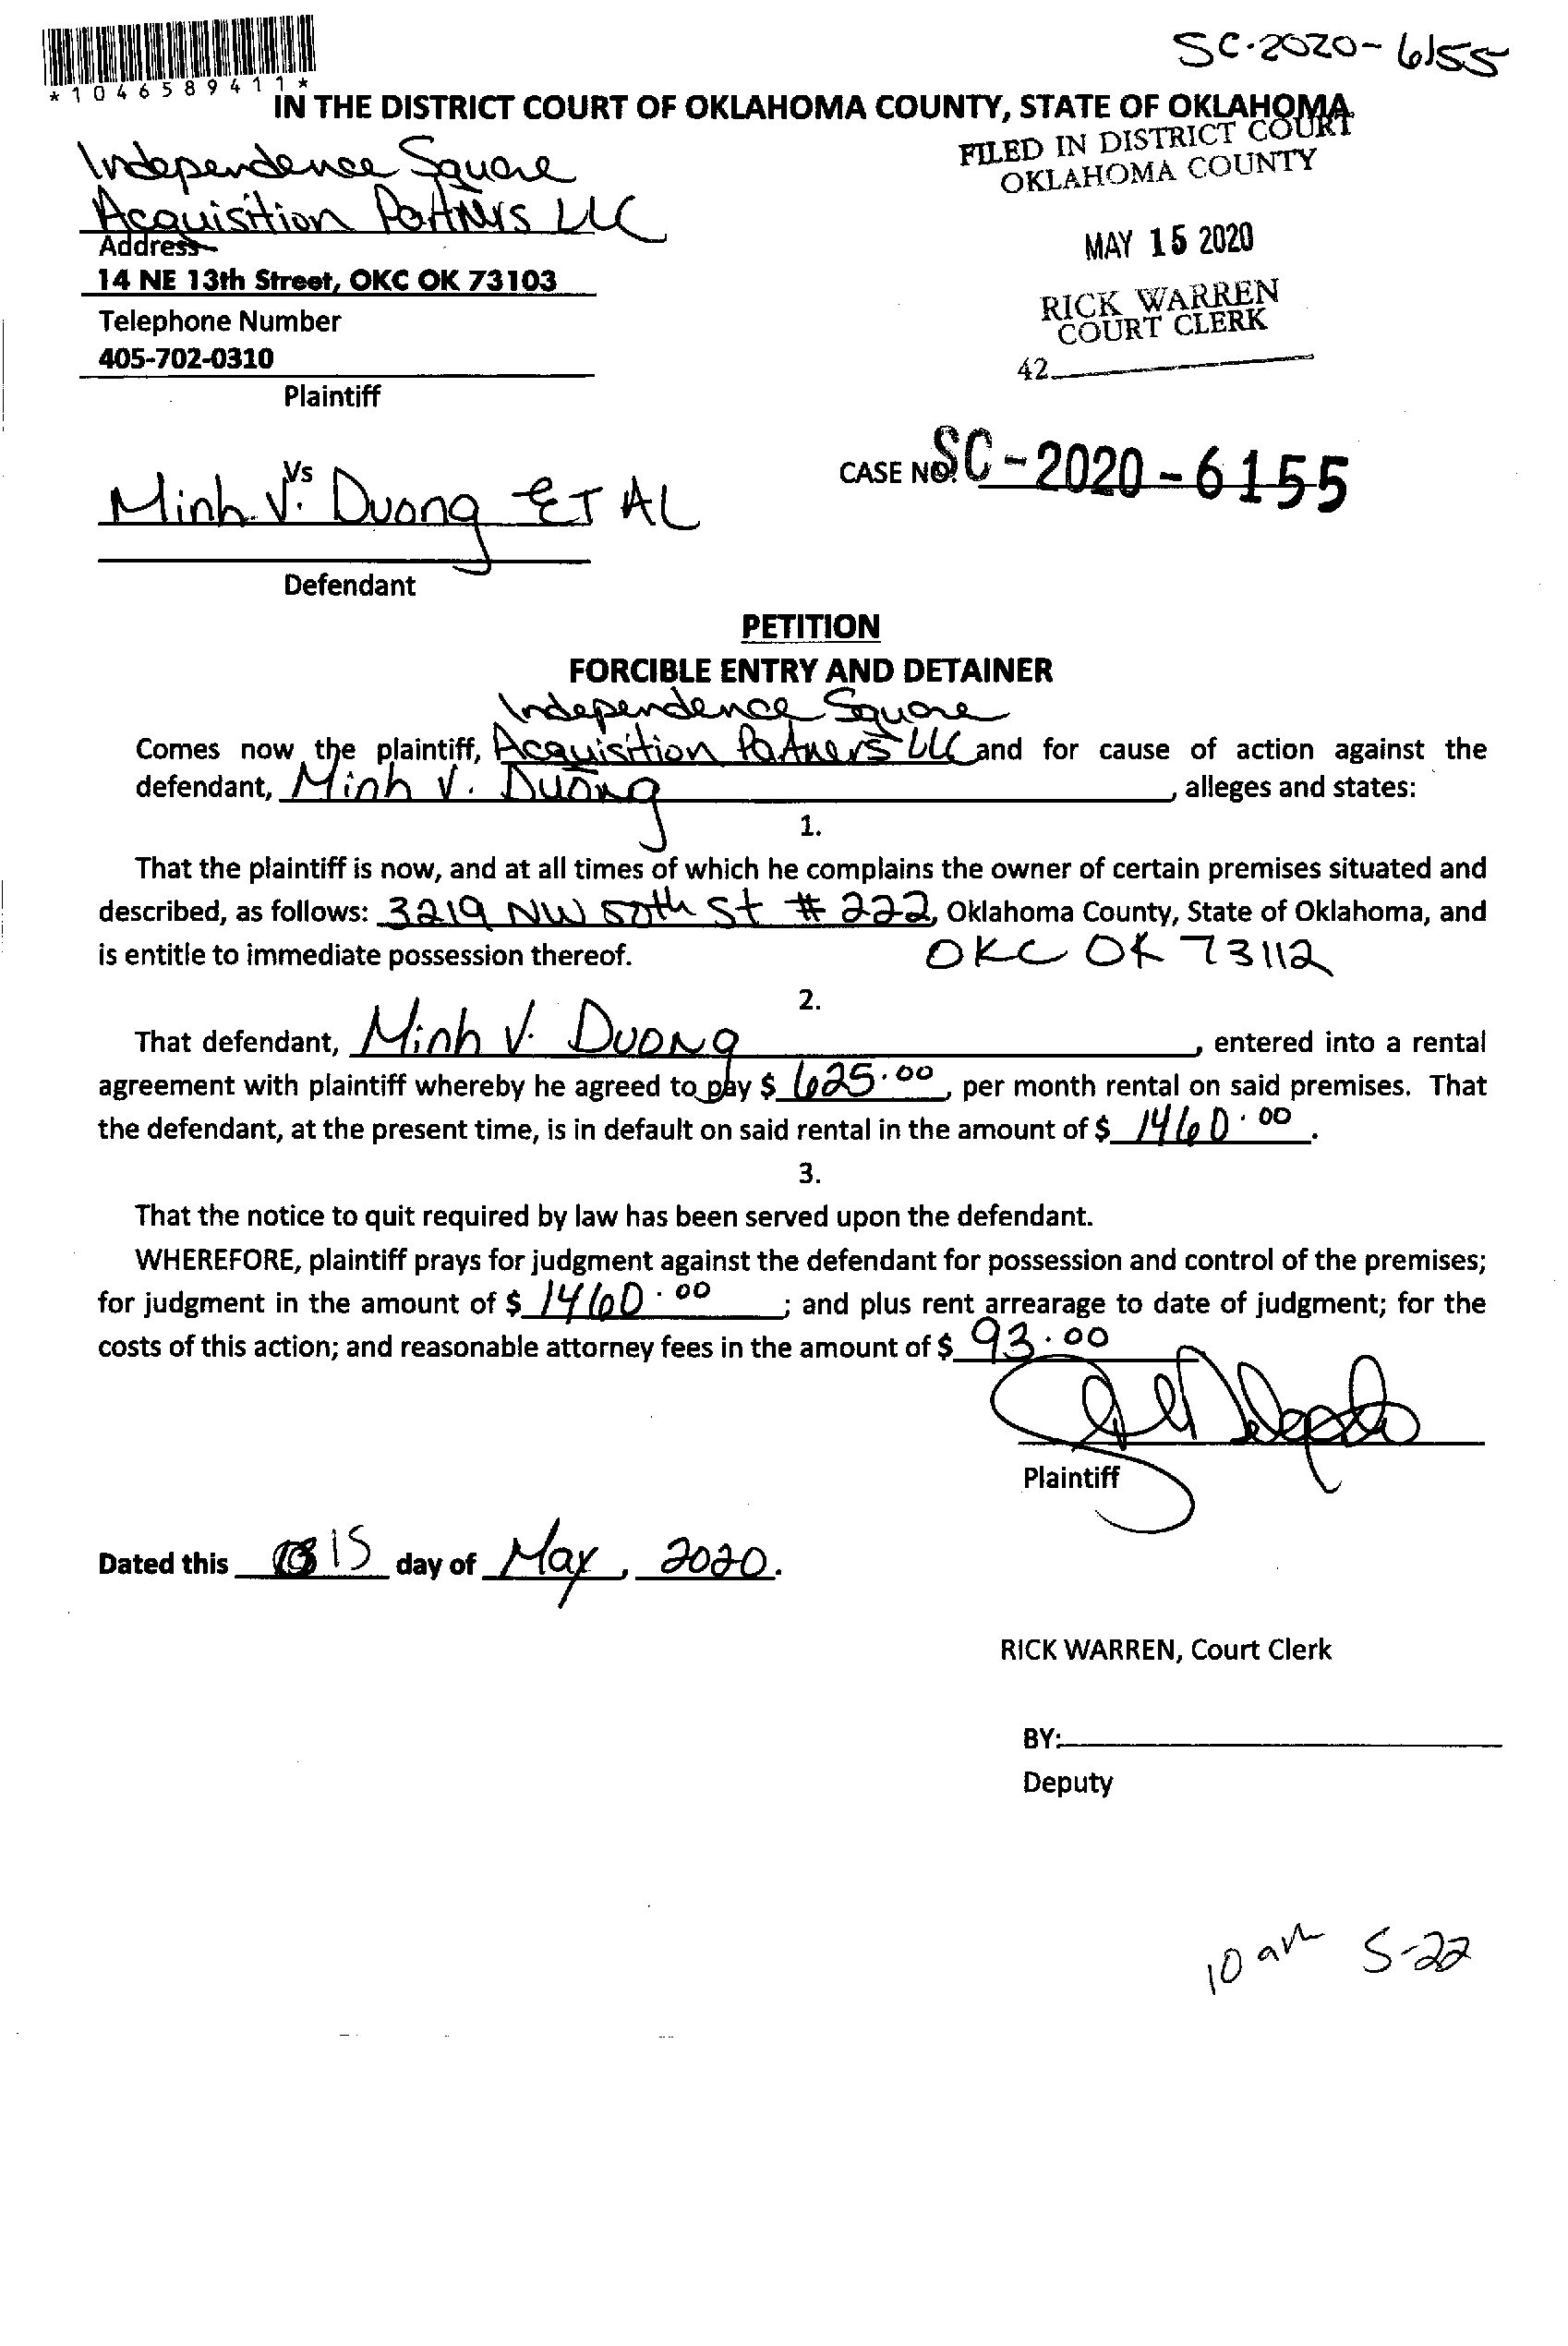 SC-2020-6155
*1046589411*
IN THE DISTRICT COURT OF OKLAHOMA COUNTY, STATE OF OKLAHOMA
FILED IN DISTRICT COURT
OKLAHOMA COUNTY
Independence Square
Acquisition Partners LLC
Address
MAY 15 2020
14 NE 13th Street, OKC OK 73103
RICK WARREN
COURT CLERK
Telephone Number
405-702-0310
42
Plaintiff
Vs
CASE NO. SC-2020-6155
Minh V. Duong ET AL
Defendant
PETITION
FORCIBLE ENTRY AND DETAINER
Independence Square
Comes now the plaintiff, Acquisition Partners LLC and for cause of action against the
defendant, Minh V. Duong, alleges and states:
1.
That the plaintiff is now, and at all times of which he complains the owner of certain premises situated and
described, as follows: 3219 NW 50th St # 222, Oklahoma County, State of Oklahoma, and
is entitle to immediate possession thereof. OKC OK 73112
2.
That defendant, Minh V. Duong, entered into a rental
agreement with plaintiff whereby he agreed to pay $ 625.00, per month rental on said premises. That
the defendant, at the present time, is in default on said rental in the amount of $ 1460.00.
3.
That the notice to quit required by law has been served upon the defendant.
WHEREFORE, plaintiff prays for judgment against the defendant for possession and control of the premises;
for judgment in the amount of $ 1460.00; and plus rent arrearage to date of judgment; for the
costs of this action; and reasonable attorney fees in the amount of $ 93.00
Plaintiff
Dated this 15 day of May, 2020.
RICK WARREN, Court Clerk
BY:
Deputy
10 am 5-22